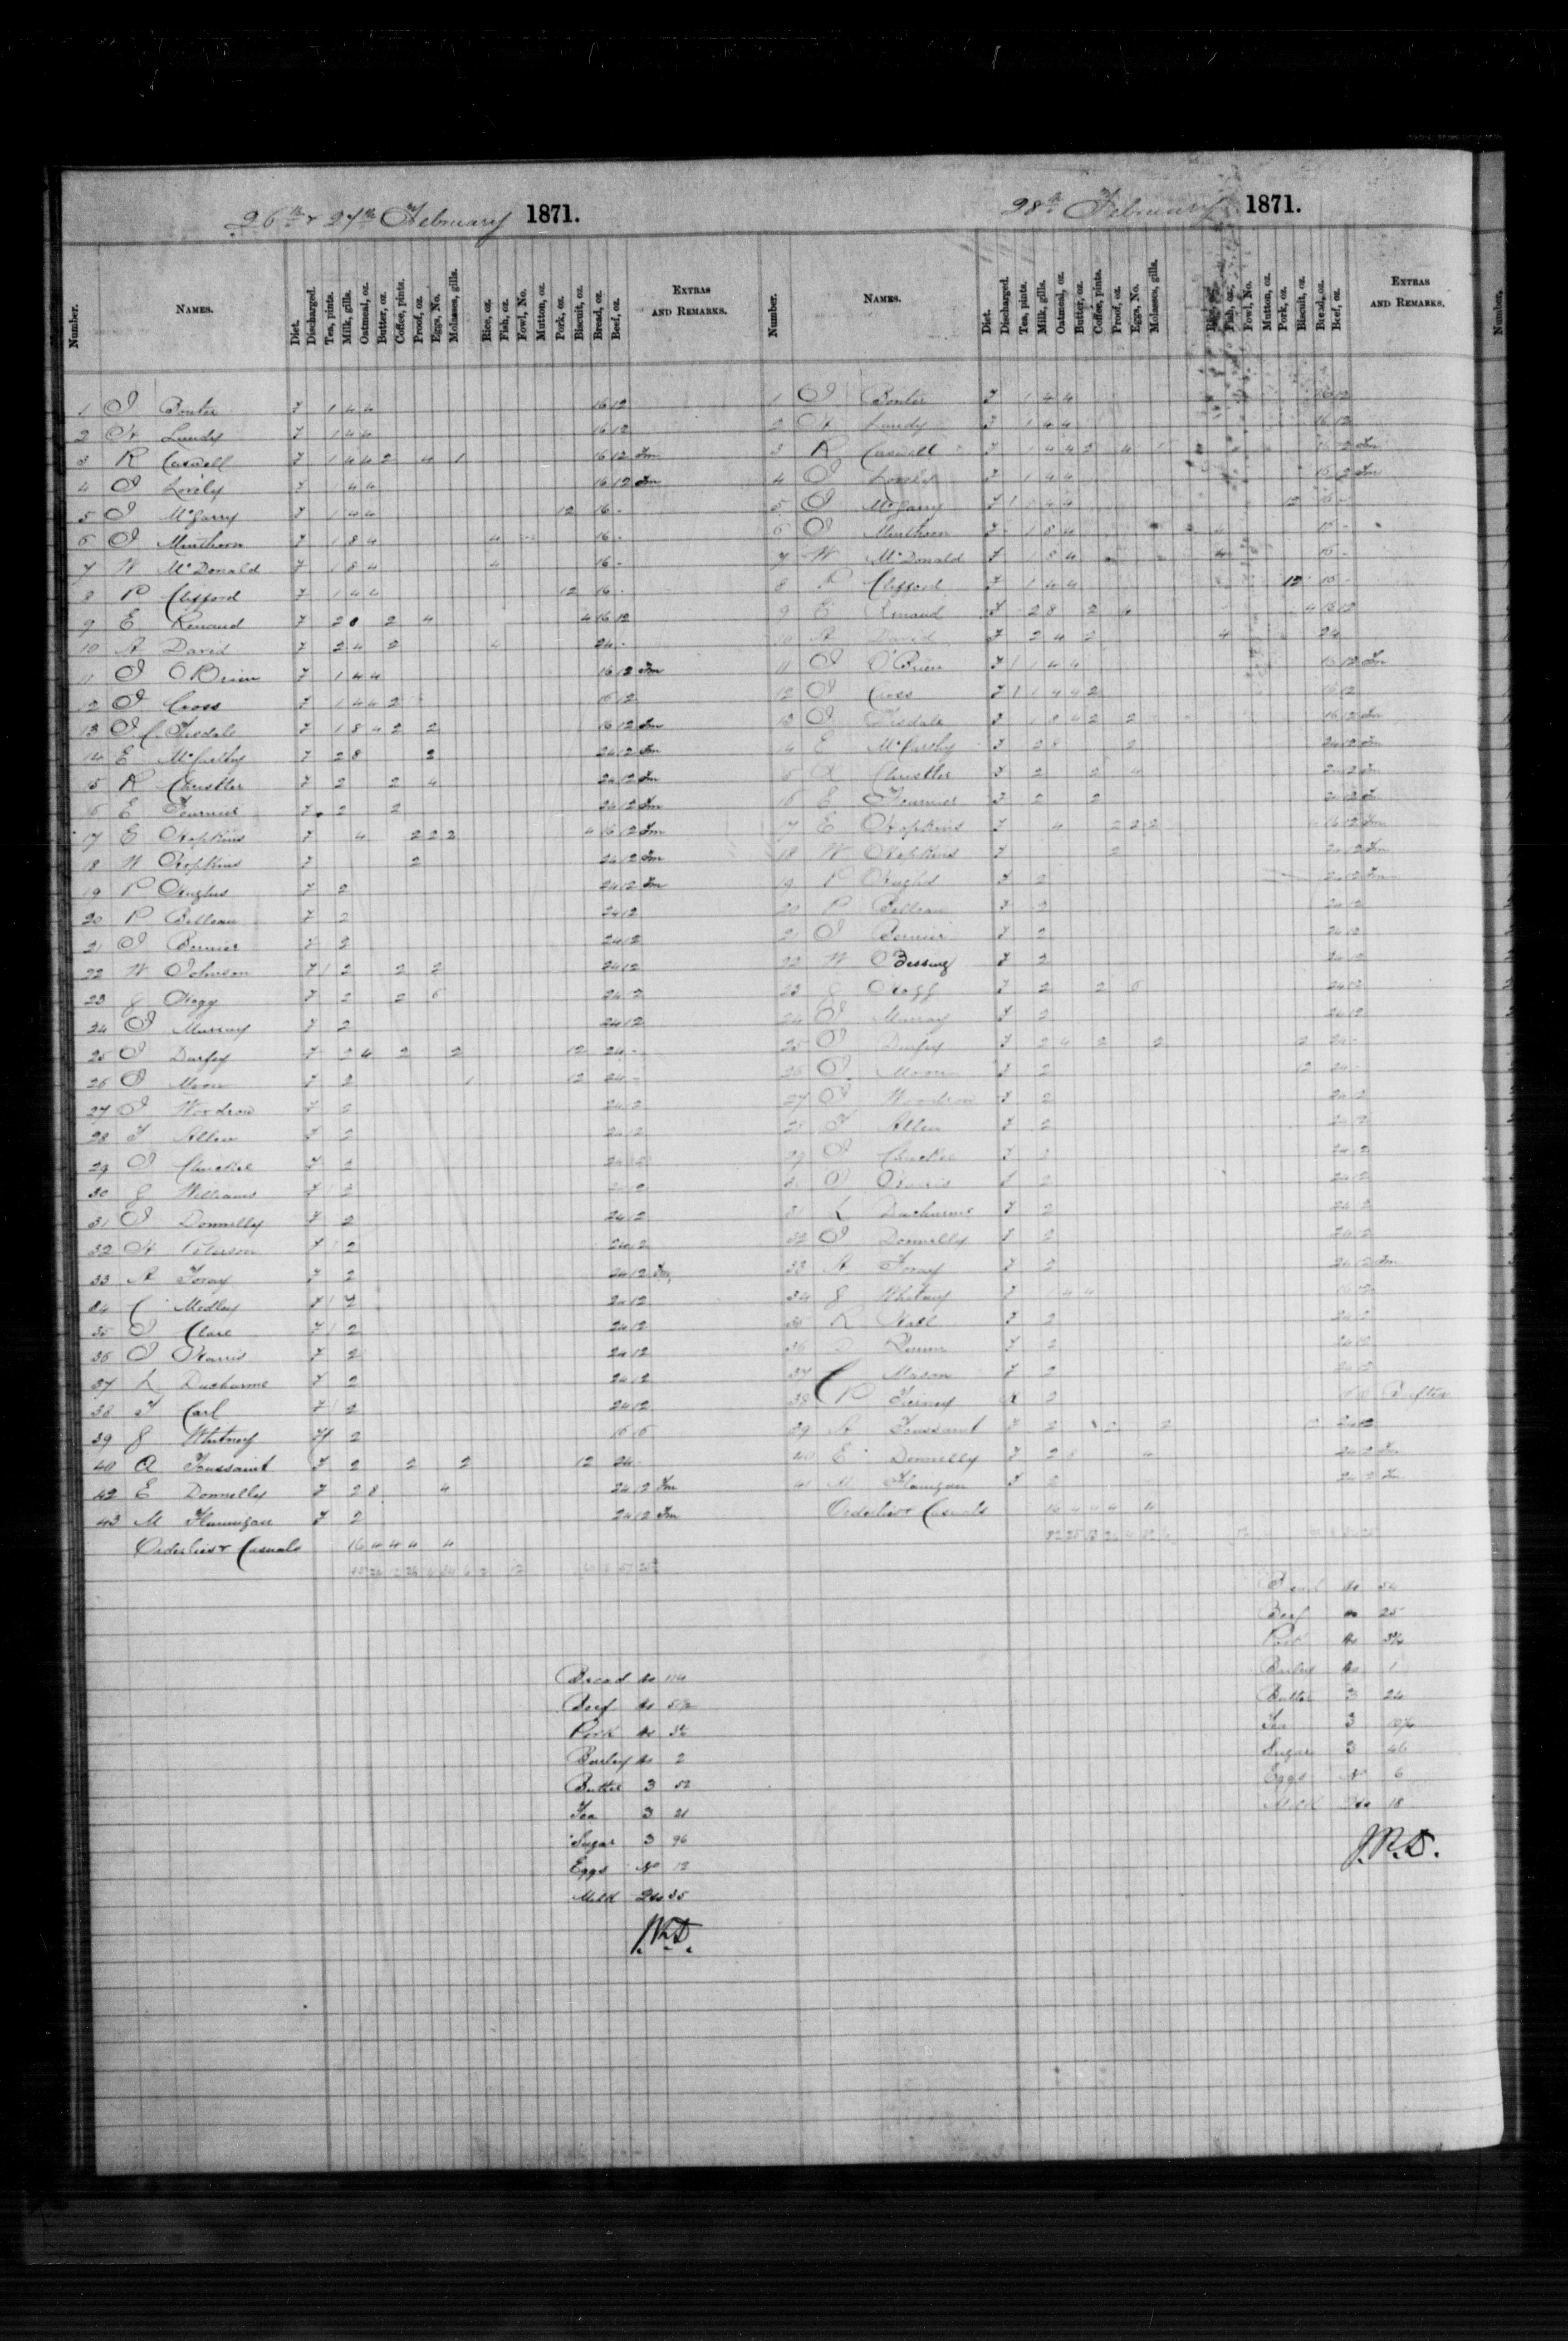 26th & 27th February 1871.
Number. Names. Diet. Discharged. Tea, pints. Milk, gills. Oatmeal, oz. Butter, oz. Coffee, pints. Proof, oz. Eggs, No. Molasses, gills. Rice, oz. Fish, oz. Fowl, No. Mutton, oz. Pork, oz. Biscuit, oz. Bread, oz. Beef, oz. Extras and Remarks.
1 J Bouter F 1 4 4 16 12
2 H Lundy F 1 4 4 16 12
3 R Caswell F 1 4 4 2 4 1 16 12 Im
4 J Lovely F 1 4 4 16 12 Im
5 J McGarry F 1 4 4 12 16 -
6 J Minthorn F 1 8 4 4 16 -
7 W McDonald F 1 8 4 4 16 -
8 P Clifford F 1 4 4 12 16 -
9 E Renaud F 2 2 4 4 16 12
10 A David F 2 4 2 4 24 -
11 J O'Brien F 1 4 4 16 12 Im
12 J Cross F 1 4 4 2 16 12
13 J C Tisdale F 1 8 4 2 2 16 12 Im
14 E McCarthy F 2 8 2 24 12 Im
15 R Christler F 2 2 4 24 12 Im
16 E Fournier F 2 2 24 12 Im
17 E Hopkins F 4 2 2 2 4 16 12 Im
18 W Hopkins F 2 24 12 Im
19 P Hughes F 2 24 12 Im
20 P Belleau F 2 24 12
21 J Bernier F 2 24 12
22 W Johnson F 1 2 2 2 24 12
23 G Hogg F 2 2 6 24 12
24 J Murray F 2 24 12
25 J Durfey F 2 4 2 2 12 24 -
26 J Moon F 2 12 24 -
27 J Woodrow F 2 24 12
28 F Allen F 2 24 12
29 J Chuckel F 2 24 12
30 G Williams F 1 2 24 12
31 J Donnelly F 2 24 12
32 H Peterson F 1 2 24 12
33 A Foray F 2 24 12 Im
34 C Medley F 1 2 24 12
35 J Clare F 1 2 24 12
36 J Harris F 2 24 12
37 L Ducharme F 2 24 12
38 F Carl F 1 2 24 12
39 G Whitney H 2 16 6
40 A Toussaint F 2 2 2 12 24 -
42 E Donnelly F 2 8 4 24 12 Im
43 M Flannigan F 2 24 12 Im
Orderlies & Casuals 16 4 4 4 4
Bread lbs 114
Beef lbs 51½
Pork lbs 3½
Barley lbs 2
Butter 3 52
Tea 3 21
Sugar 3 96
Eggs No 12
Milk Qts 35
28th February 1871.
Number. Names. Diet. Discharged. Tea, pints. Milk, gills. Oatmeal, oz. Butter, oz. Coffee, pints. Proof, oz. Eggs, No. Molasses, gills. Rice, oz. Fish, oz. Fowl, No. Mutton, oz. Pork, oz. Biscuit, oz. Bread, oz. Beef, oz. Extras and Remarks. Number.
1 J Bouter F 1 4 4 16 12
2 H Lundy F 1 4 4 16 12
3 R Caswell F 1 4 4 2 4 1 16 12 Im
4 J Lovely F 1 4 4 16 12 Im
5 J McGarry F 1 1 4 4 12 16 -
6 J Minthorn F 1 8 4 4 16 -
7 W McDonald F 1 8 4 4 16 -
8 P Clifford F 1 4 4 12 16 -
9 E Renaud F 2 8 2 4 4 16 12
10 A David F 2 4 2 4 24
11 J O'Brien F 1 1 4 4 16 12 Im
12 J Cross F 1 1 4 4 2 16 12
13 J Tisdale F 1 8 4 2 2 16 12 Im
14 E McCarthy F 2 8 2 24 12 Im
15 R Christler F 2 2 4 24 12 Im
16 E Fournier F 2 2 24 12 Im
17 E Hopkins F 4 2 2 2 4 16 12 Im
18 W Hopkins F 2 24 12 Im
19 P Hughes F 2 24 12 Im
20 P Belleau F 2 24 12
21 J Bernier F 2 24 12
22 W Bessing F 2 24 12
23 G Hogg F 2 2 6 24 12
24 J Murray F 2 24 12
25 J Durfey F 2 4 2 2 12 24 -
26 J Moon F 2 12 24 -
27 J Woodrow F 2 24 12
28 F Allen F 2 24 12
29 J Chuckel F 2 24 12
30 J Harris F 2 24 12
31 L Ducharme F 2 24 12
32 J Donnelly F 2 24 12
33 A Foray F 2 24 12 Im
34 G Whitney F 1 4 4 16 12
35 R Hall F 2 24 12
36 F 2 24 12
37 C Mason F 2 24 12
38 P Tierney 2
39 A Toussaint F 2 2 2 12 24
40 E Donnelly F 2 8 4 24 12 Im
41 M Flanigan F 2 24 12 Im
Orderlies & Casuals 16 4 4 4 4
Bread lbs 54
Beef lbs 25
Pork lbs 3¾
Barley lbs 1
Butter 3 24
Tea 3 10½
Sugar 3 46
Eggs No 6
Milk Qts 18